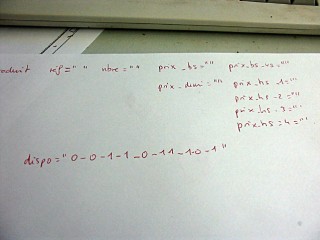 produit ref="" nbre="" prix_hs="" prix_bs_hs=""
prix_demi="" prix_hs_1=""
prix_hs_2=""
prix_hs_3=""
prix_hs=4=""
dispo="0-0-1-1-0-11-1-0-1"